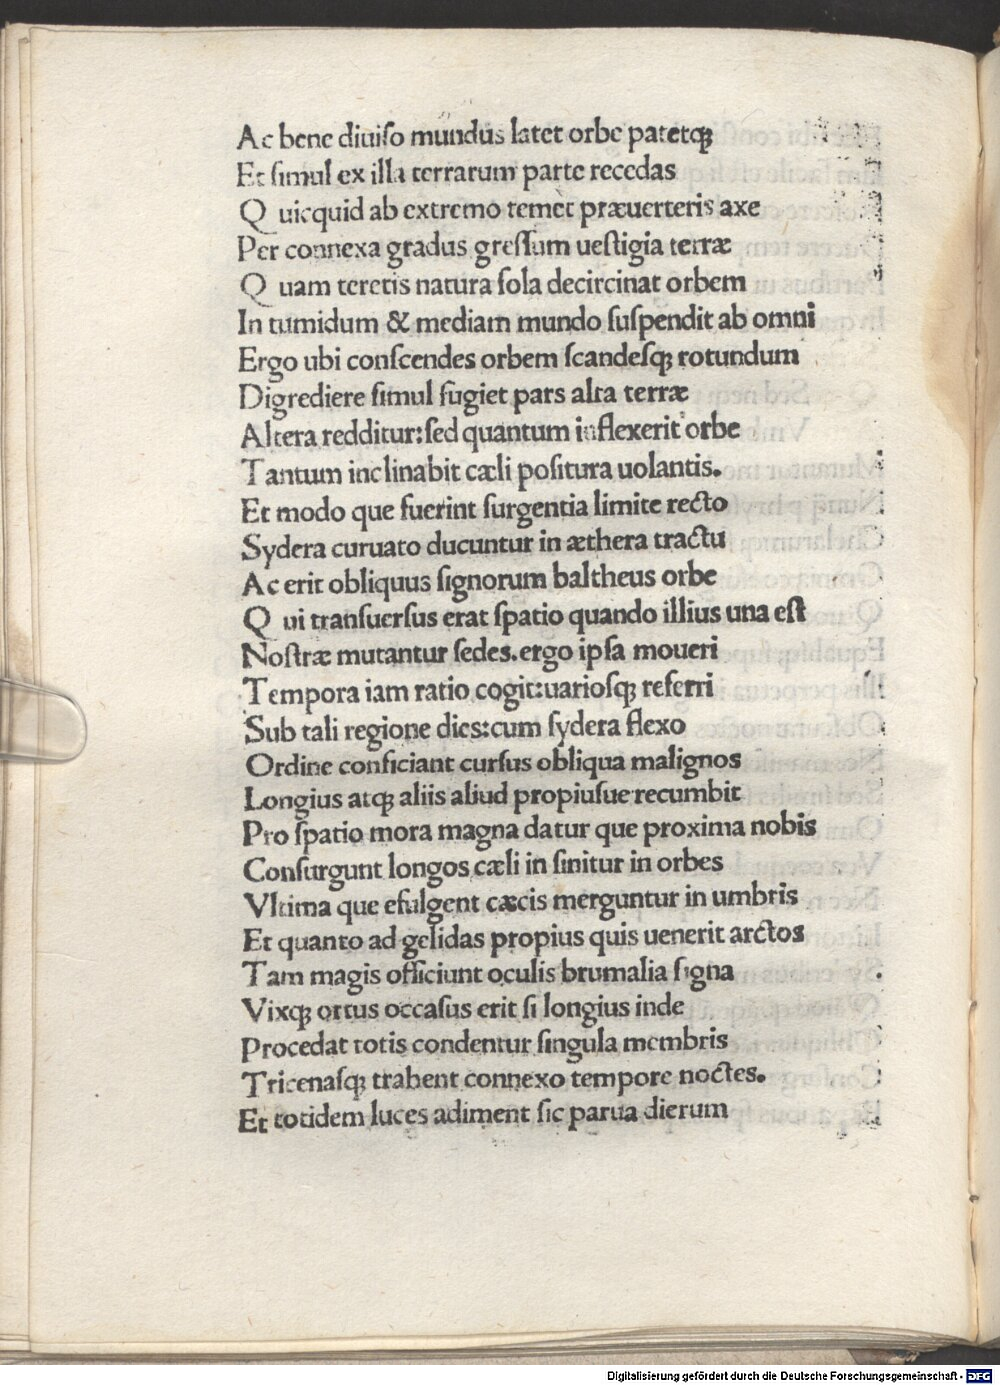 Ac bene diuiſo mundus latet orbe patetqꝫ
Et ſimul ex illa terrarum parte recedas
Q uicquid ab extremo temet præuerteris axe
Per connexa gradus greſſum ueſtigia terræ
Q uam teretis natura ſola decircinat orbem
In tumidum & mediam mundo ſuſpendit ab omni
Ergo ubi conſcendes orbem ſcandeſqꝫ rotundum
Digrediere ſimul fugiet pars alta terræ
Altera redditur: ſed quantum inflexerit orbe
Tantum inclinabit cæli poſitura uolantis.
Et modo que fuerint ſurgentia limite recto
Sydera curuato ducuntur in æthera tractu
Ac erit obliquus ſignorum baltheus orbe
Q ui tranſuerſus erat ſpatio quando illius una eſt
Noſtræ mutantur ſedes. ergo ipſa moueri
Tempora iam ratio cogit: uarioſqꝫ referri
Sub tali regione dies: cum ſydera flexo
Ordine conficiant curſus obliqua malignos
Longius atqꝫ aliis aliud propiuſue recumbit
Pro ſpatio mora magna datur que proxima nobis
Conſurgunt longos cæli in finitur in orbes
Vltima que efulgent cæcis merguntur in umbris
Et quanto ad gelidas propius quis uenerit arctos
Tam magis officiunt oculis brumalia ſigna
Vixqꝫ ortus occaſus erit ſi longius inde
Procedat totis condentur ſingula membris
Tricenaſqꝫ trahent connexo tempore noctes.
Et totidem luces adiment ſic parua dierum
Digitalisierung gefördert durch die Deutsche Forschungsgemeinschaft - DFG